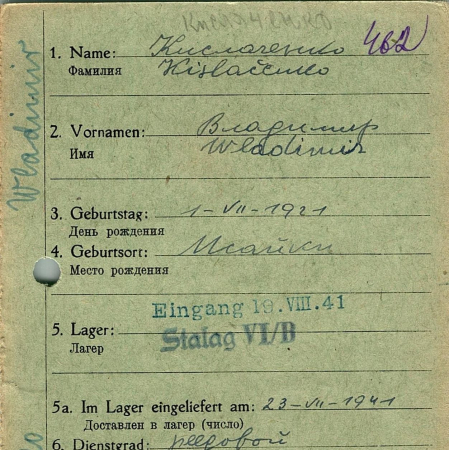 Кислаченко
1. Name: Кислаченко 462
Фамилия Kislačenko
Wladimir
2. Vornamen: Владимир
Имя Wladimir
3. Geburtstag: 1-VII-1921
День рождения
4. Geburtsort: Исайки
Место рождения
Eingang 19.VIII.41
5. Lager: Stalag VI/B
Лагер
5a. Im Lager eingeliefert am: 23-VII-1941
Доставлен в лагер (число)
6. Dienstgrad: рядовой